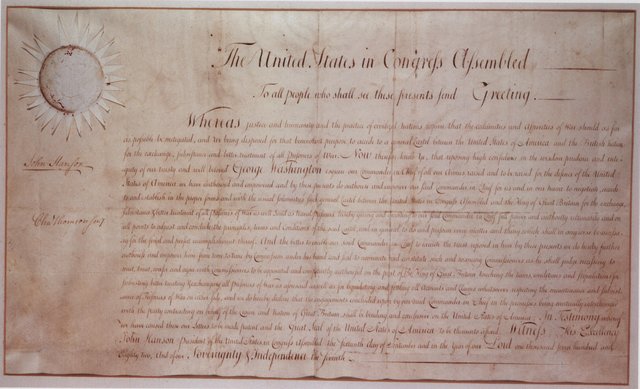 The United States in Congress Assembled
To all people who shall see these presents send Greeting.
Whereas justice and humanity and the practice of civilized nations require that the calamities and asperities of War should as far
as possible be mitigated, and We being disposed for that benevolent purpose to accede to a general Cartel between the United States of America and the British Nation
for the exchange, subsistence and better treatment of all Prisoners of War. Now therefore know Ye, that reposing high confidence in the wisdom prudence and inte-
John Hanson
grity of our trusty and well beloved George Washington esquire our Commander in Chief of all our Armies raised and to be raised for the defence of the United
States of America we have authorized and empowered and by these presents do authorize and empower our said Commander in Chief for us and in our name to negotiate, accede
to and establish in the proper forms and with the usual formalities such general Cartel between the United States in Congress Assembled and the King of Great Britain for the exchange,
subsistence & better treatment of all Prisoners of War as well land as Naval Prisoners hereby giving and
Chas Thomson secy
all points to adjust and conclude the principles, terms and Conditions of the said Cartel; and in general to do and perform every matter and thing which shall in anywise be necessa-
ry for the final and perfect accomplishment thereof. And the better to enable our said Commander in Chief to execute the trust reposed in him by these presents we do hereby further
authorize and empower him from time to time by Commission under his hand and seal to nominate and constitute such and so many Commissioners as he shall judge necessary to
meet, treat, confer and agree with Commissioners to be appointed and competently authorised on the part of the King of Great Britain touching the terms, conditions and stipulations for
all Prisoners of war as aforesaid as well as for liquidating and settling all Accounts and Claims whatsoever respecting the maintenance and subsist-
ence of Prisoners of War on either side, and we do hereby declare that the engagements concluded upon by our said Commander in Chief in the premises being mutually interchanged
with the party contracting on behalf of the Crown and Nation of Great Britain shall be binding and conclusive on the United States of America. In Testimony whereof
we have caused these our Letters to be made patent and the Great Seal of the United States of America to be thereunto affixed. Witness His Excellency
John Hanson President of the United States in Congress Assembled the sixteenth day of September and in the year of our Lord one thousand seven hundred and
eighty two, and of our Sovereignty & Independence the seventh